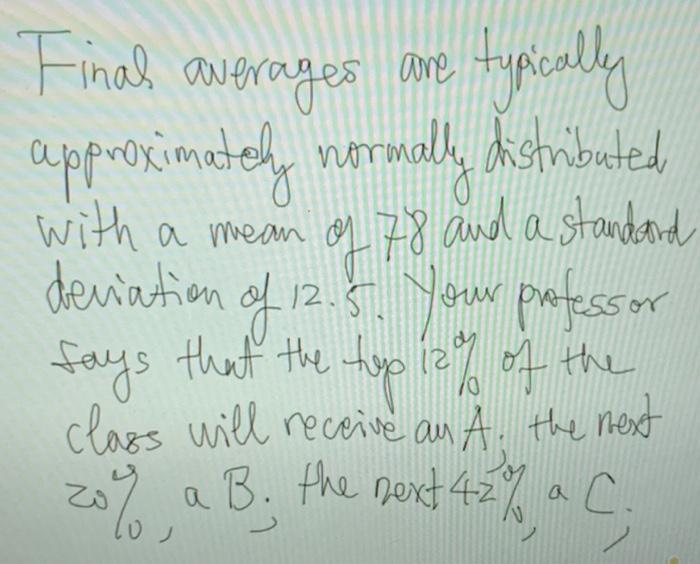 Final averages are typically
approximately normally distributed
with a mean of 78 and a standard
deviation of 12.5. Your professor
says that the top 12% of the
class will receive an A; the next
20%, a B; the next 42%, a C;